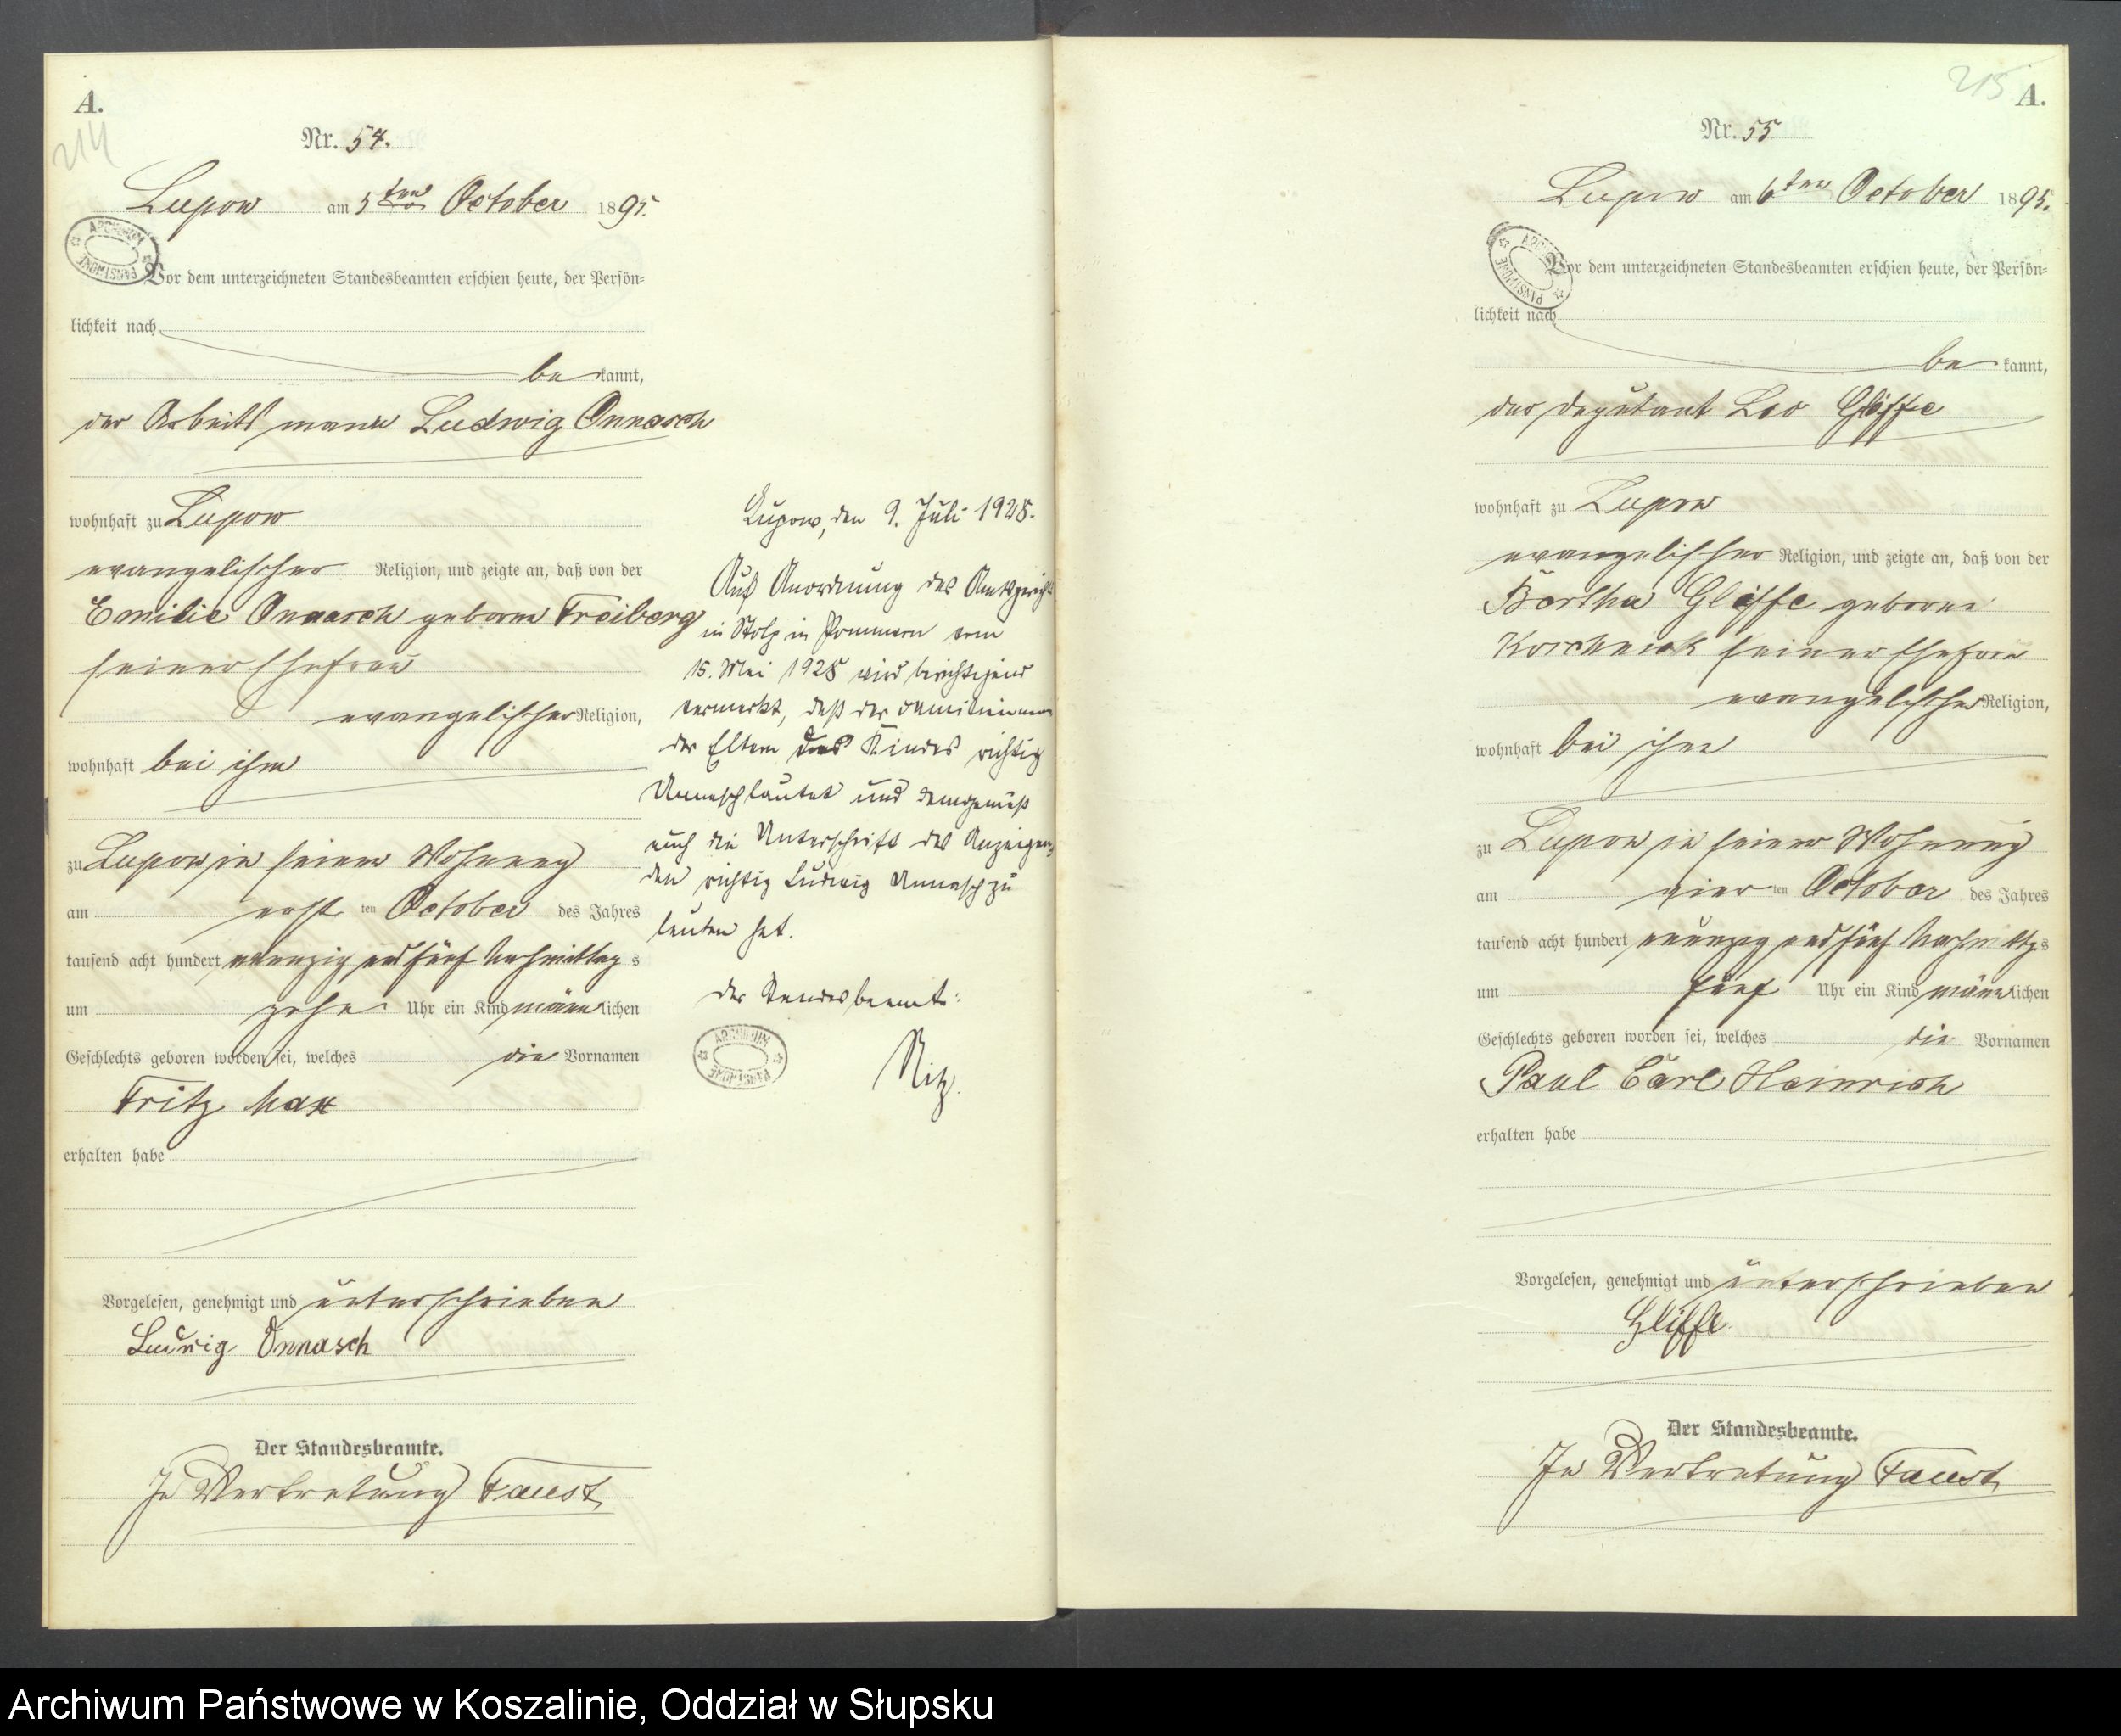 A.
214
Nr. 54.
Lupow am 5ten October 1895.
ARCHIWUM PAŃSTWOWE
Vor dem unterzeichneten Standesbeamten erschien heute, der Persön=
lichkeit nach
be kannt,
der Arbeitsmann Ludwig Onnasch
wohnhaft zu Lupow
evangelischer Religion, und zeigte an, daß von der
Emilie Onnasch geborne Freiberg
seiner Ehefrau
evangelischer Religion,
wohnhaft bei ihm
zu Lupow in seiner Wohnung
am erst ten October des Jahres
tausend acht hundert neunzig und fünf Nachmittag s
um zehn Uhr ein Kind männ lichen
Geschlechts geboren worden sei, welches die Vornamen
Fritz Max
erhalten habe
Vorgelesen, genehmigt und unterschrieben
Ludwig Onnasch
Der Standesbeamte.
In Vertretung Faust
Lupow, den 9. Juli 1928.
Auf Anordnung des Amtsgerichts
in Stolp in Pommern vom
15. Mai 1928 wird berichtigend
vermerkt, daß der Familienname
der Eltern des Kindes richtig
lautet und demgemäß
auch die Unterschrift des Anzeigen=
den richtig Ludwig zu
lauten hat.
Der Standesbeamte:
ARCHIWUM PAŃSTWOWE
215
A.
Nr. 55
Lupow am 6ten October 1895.
ARCHIWUM PAŃSTWOWE
Vor dem unterzeichneten Standesbeamten erschien heute, der Persön=
lichkeit nach
be kannt,
der Deputant Leo Gliffe
wohnhaft zu Lupow
evangelischer Religion, und zeigte an, daß von der
Bertha Gliffe geborne
seiner Ehefrau
evangelischer Religion,
wohnhaft bei ihm
zu Lupow in seiner Wohnung
am vier ten October des Jahres
tausend acht hundert neunzig und fünf Nachmittag s
um fünf Uhr ein Kind männ lichen
Geschlechts geboren worden sei, welches die Vornamen
Paul Carl Heinrich
erhalten habe
Vorgelesen, genehmigt und unterschrieben
Gliffe
Der Standesbeamte.
In Vertretung Faust
Archiwum Państwowe w Koszalinie, Oddział w Słupsku